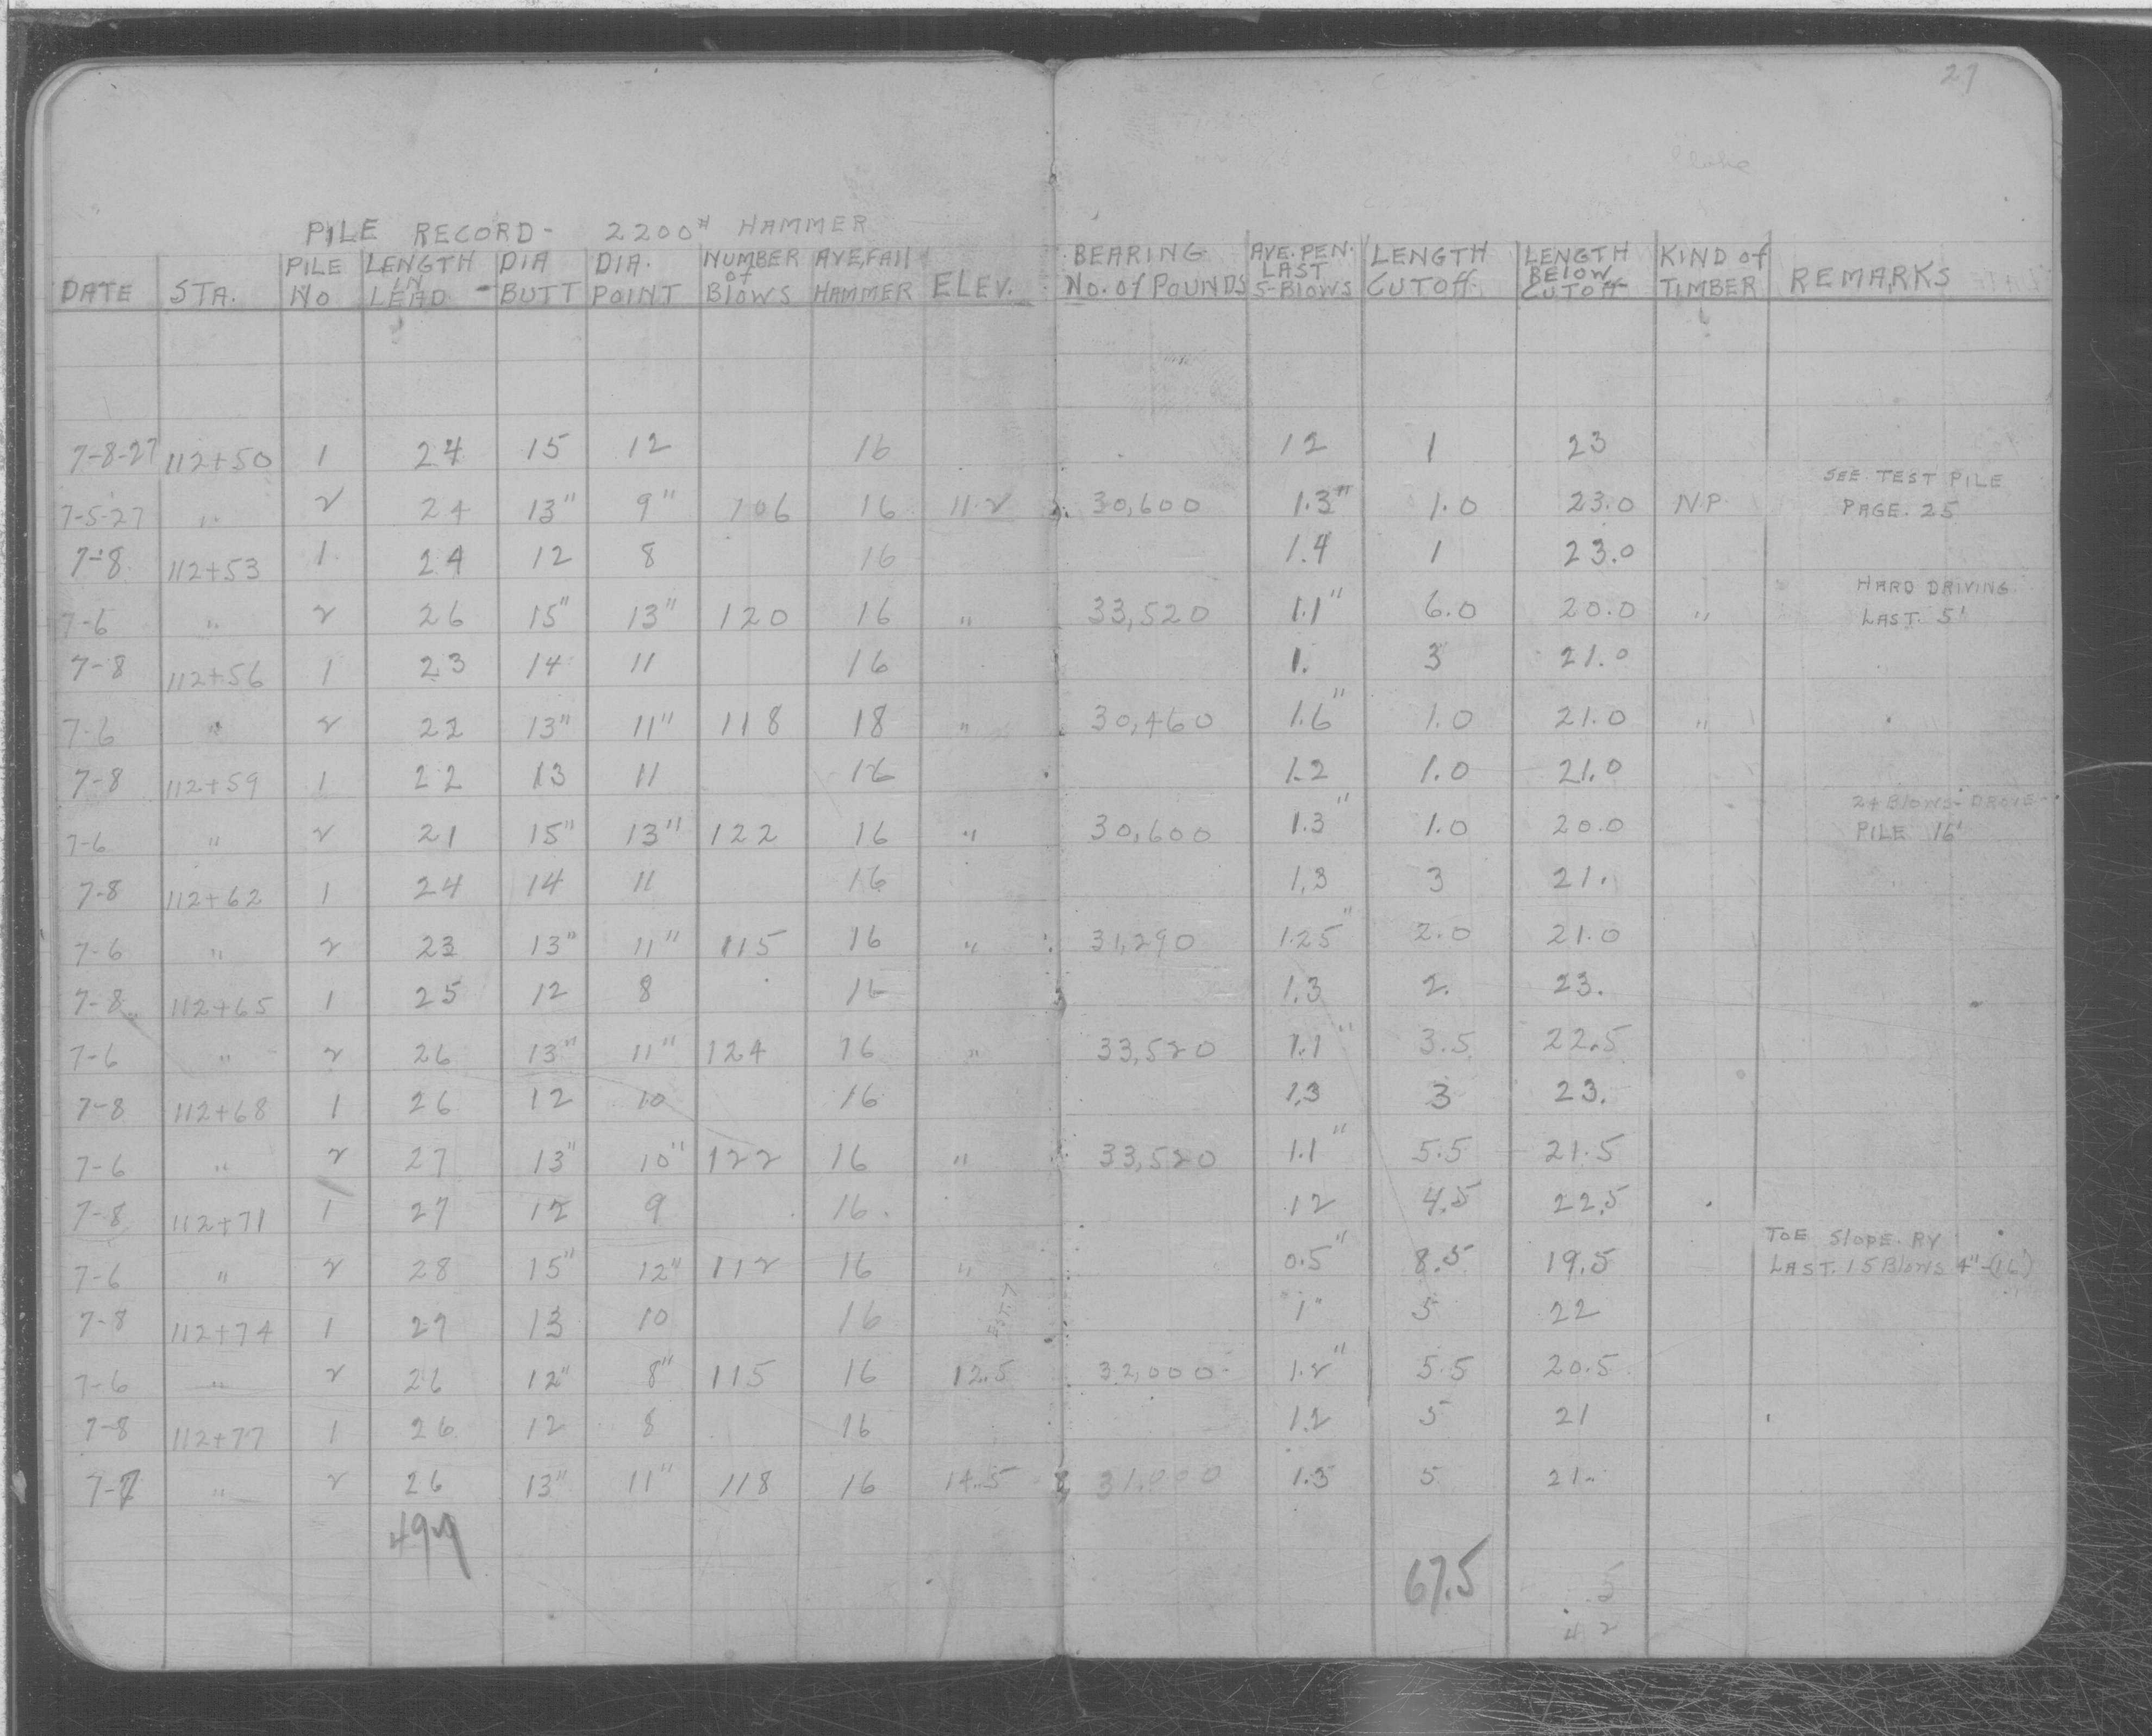 27
PILE RECORD- 2200# HAMMER
DATE STA. PILE No LENGTH IN LEAD DIA BUTT DIA. POINT NUMBER of Blows AVE, FAll HAMMER ELEV. BEARING No. of POUNDS AVE. PEN. LAST 5-Blows LENGTH CUTOFF LENGTH BELOW CUTOFF KIND of TIMBER REMARKS
7-8-27 112+50 1 24 15 12 16 12 1 23
SEE TEST PILE
7-5-27 " 2 24 13" 9" 106 16 11.2 30,600 1.3" 1.0 23.0 N.P. PAGE. 25
7-8 112+53 1 24 12 8 16 1.4 1 23.0
HARD DRIVING
7-6 " 2 26 15" 13" 120 16 " 33,520 1.1" 6.0 20.0 " LAST. 5'
7-8 112+56 1 23 14 11 16 1. 3 21.0
7-6 " 2 22 13" 11" 118 18 " 30,460 1.6" 1.0 21.0 "
7-8 112+59 1 22 13 11 16 1.2 1.0 21.0
24 Blows- DROVE-
7-6 " 2 21 15" 13" 122 16 " 30,600 1.3" 1.0 20.0 PILE 16'
7-8 112+62 1 24 14 11 16 1.3 3 21.
7-6 " 2 23 13" 11" 115 16 " 31,290 1.25" 2.0 21.0
7-8 112+65 1 25 12 8 16 1.3 2. 23.
7-6 " 2 26 13" 11" 124 16 " 33,520 1.1" 3.5 22.5
7-8 112+68 1 26 12 10 16 1.3 3 23.
7-6 " 2 27 13" 10" 122 16 " 33,520 1.1" 5.5 21.5
7-8 112+71 1 27 12 9 16. 12 4.5 22.5
TOE Slope. RV
7-6 " 2 28 15" 12" 112 16 " 0.5" 8.5 19.5 LAST. 15 Blows 4"-(16)
EST. 7
7-8 112+74 1 27 13 10 16 1" 5 22
7-6 " 2 26 12" 8" 115 16 12.5 32,000 1.2" 5.5 20.5
7-8 112+77 1 26 12 8 16 1.2 5 21
7-7 " 2 26 13" 11" 118 16 14.5 31,000 1.3 5 21.
499
67.5
.5